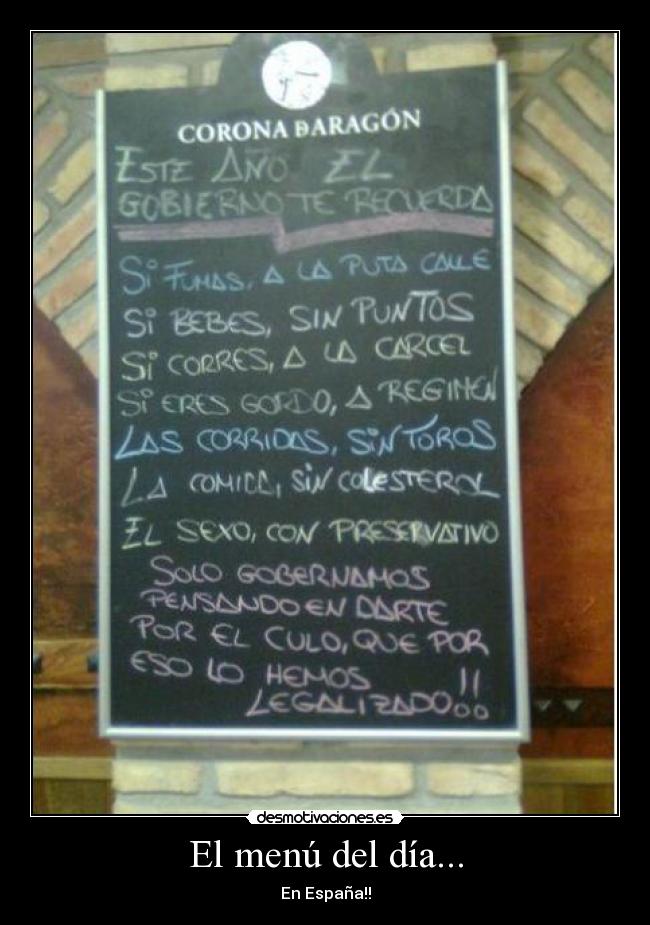 CORONA DARAGÓN
ESTE AÑO EL
GOBIERNO TE RECUERDA
Si FUMAS, A LA PUTA CALLE
Si BEBES, SIN PUNTOS
Si CORRES, A LA CARCEL
Si ERES GORDO, A REGIMEN
LAS CORRIDAS, SiN TOROS
LA COMIDA, SiN COLESTEROL
EL SEXO, CON PRESERVATIVO
SOLO GOBERNAMOS
PENSANDO EN DARTE
POR EL CULO, QUE POR
ESO LO HEMOS
LEGALIZADO!!
desmotivaciones.es
El menú del día...
En España!!